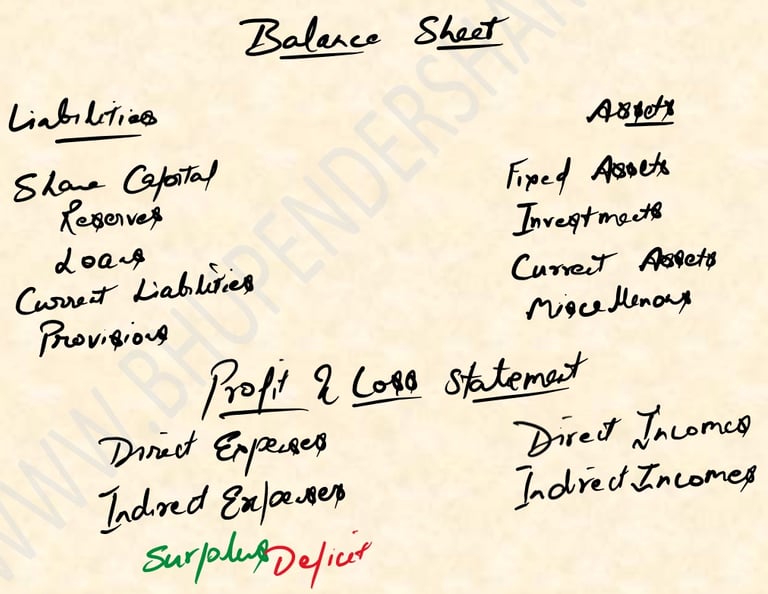 Balance Sheet
Liabilities Assets
Share Capital Fixed Assets
Reserves Investments
Loans Current Assets
Current Liabilities Miscellenous
Provisions
Profit & Loss Statement
Direct Expenses Direct Incomes
Indirect Expenses Indirect Incomes
Surplus Deficit
WWW.BHUPENDERSHAR